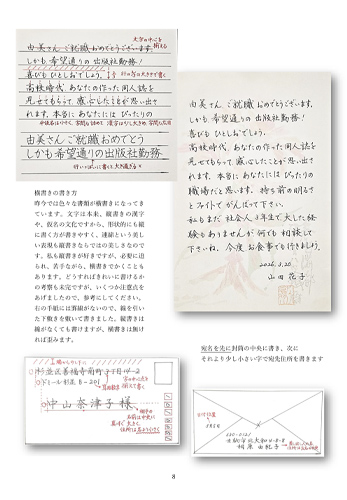 文字の中心を揃える
由美さん ご就職おめでとうございます。
しかも希望通りの出版社勤務！
喜びもひとしおでしょう。
高校時代、あなたの作った同人誌を
見せてもらって、感心したことが思い出さ
れます。本当に、あなたには ぴったりの
由美さん ご就職おめでとう
しかも希望通りの出版社勤務
行いっぱいに書くと
由美さん ご就職おめでとうございます。
しかも 希望通りの 出版社勤務！
喜びも ひとしおでしょう。
高校時代、あなたの作った同人誌を見
せてもらって、感心したことが思い出さ
れます。本当に あなたには ぴったりの
職場だと思います。持ち前の明るさ
とファイトで がんばって下さい。
私もまだ 社会人3年生で 大した経
験もありませんが 何でも 相談して
下さいね。今度 お食事でも行きましょう。
2026.3.20
山田 花子
横書きの書き方
昨今では色々な書類が横書きになってき
ています。文字は本来、縦書きの漢字
や、仮名の文化ですから、形状的にも縦
に書く方が書きやすく、連綿という美し
い表現も縦書きならではの美しさなので
す。私も縦書きが好きですが、必要に迫
られ、苦手ながら、横書きでかくことも
あります。どうすればきれいに書けるか
の考察も未完ですが、いくつか注意点を
あげましたので、参考にしてください。
右の手紙には罫線がないので、線を引い
た下敷きを敷いて書きました。縦書きは
線がなくても書けますが、横書きは無け
れば歪みます。
宛名を先に封筒の中央に書き、次に
それより少し小さい字で宛先住所を書きます
杉並区善福寺南町3丁目14-2
ドミール杉並B-201
中山奈津子様
8